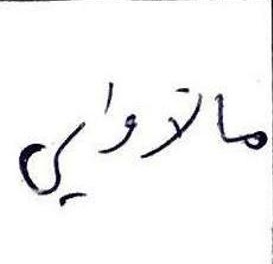 مالاواي